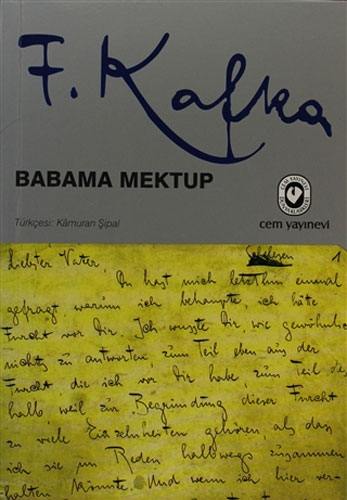 F. Kafka
BABAMA MEKTUP
CEM YAYINEVİ
Türkçesi: Kâmuran Şipal
cem yayınevi
Schelesen 1
Liebster Vater,
Du hast mich letzthin einmal
gefragt warum ich behaupte, ich hätte
Furcht vor Dir. Ich wusste Dir, wie gewöhnlich
nichts zu antworten, zum Teil eben aus der
Furcht, die ich vor Dir habe, zum Teil de
halb, weil zur Begründung dieser Furcht
zu viele Einzelnheiten gehören, als dass
ich sie im Reden halbwegs zusammen
halten könnte. Und wenn ich hier ver-